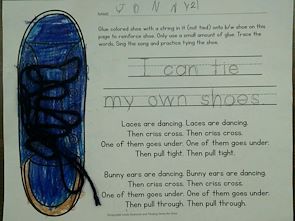 Glue colored shoe with a string in it (not tied) onto b/w shoe on this
page to reinforce shoe. Only use a small amount of glue. Trace the
words. Sing the song and practice tying the shoe.
I can tie
my own shoes
Laces are dancing. Laces are dancing.
Then criss cross. Then criss cross.
One of them goes under. One of them goes under.
Then pull tight. Then pull tight.
Bunny ears are dancing. Bunny ears are dancing.
Then criss cross. Then criss cross.
One of them goes under. One of them goes under.
Then pull through. Then pull through.